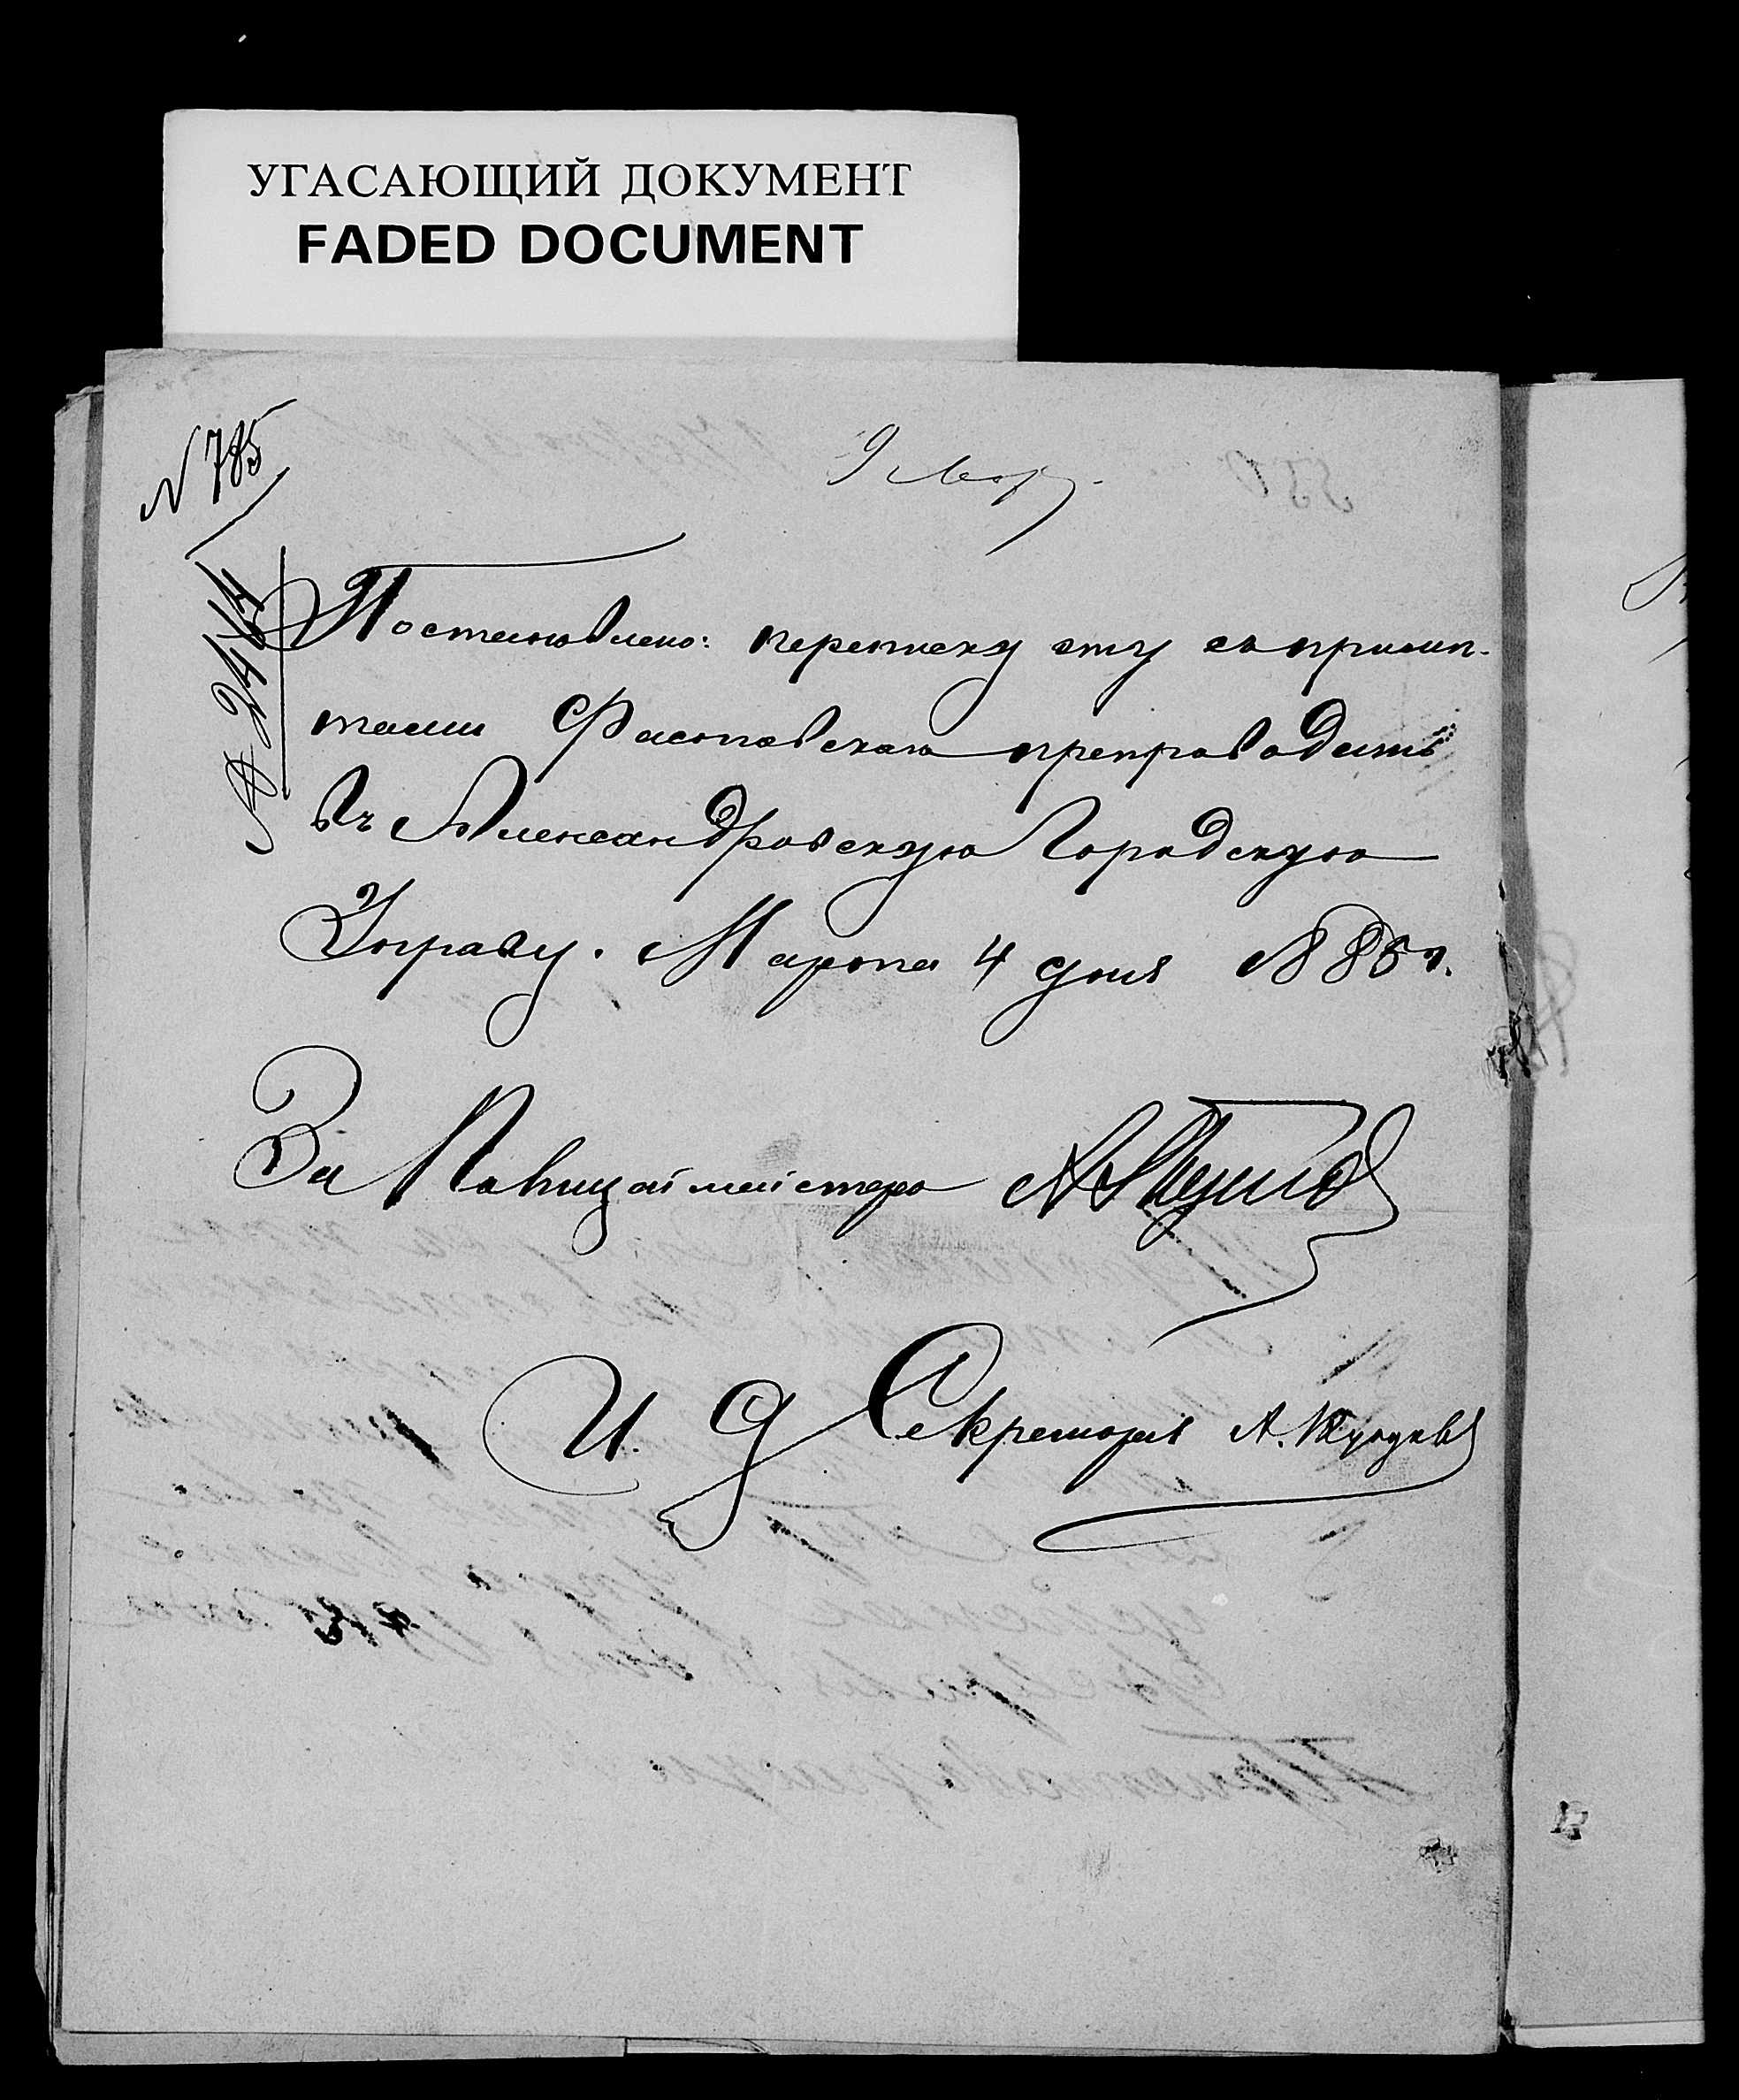 УГАСАЮЩИЙ ДОКУМЕНТ
FADED DOCUMENT
N 785
9 Мар.
Постановлено: переписку эту съ примѣ-
тами Фастовскаго препроводить
въ Александровскую Городскую
Управу. Марта 4 дня 1885 г.
За Полицаймейстера
И. Д. Секретаря А.